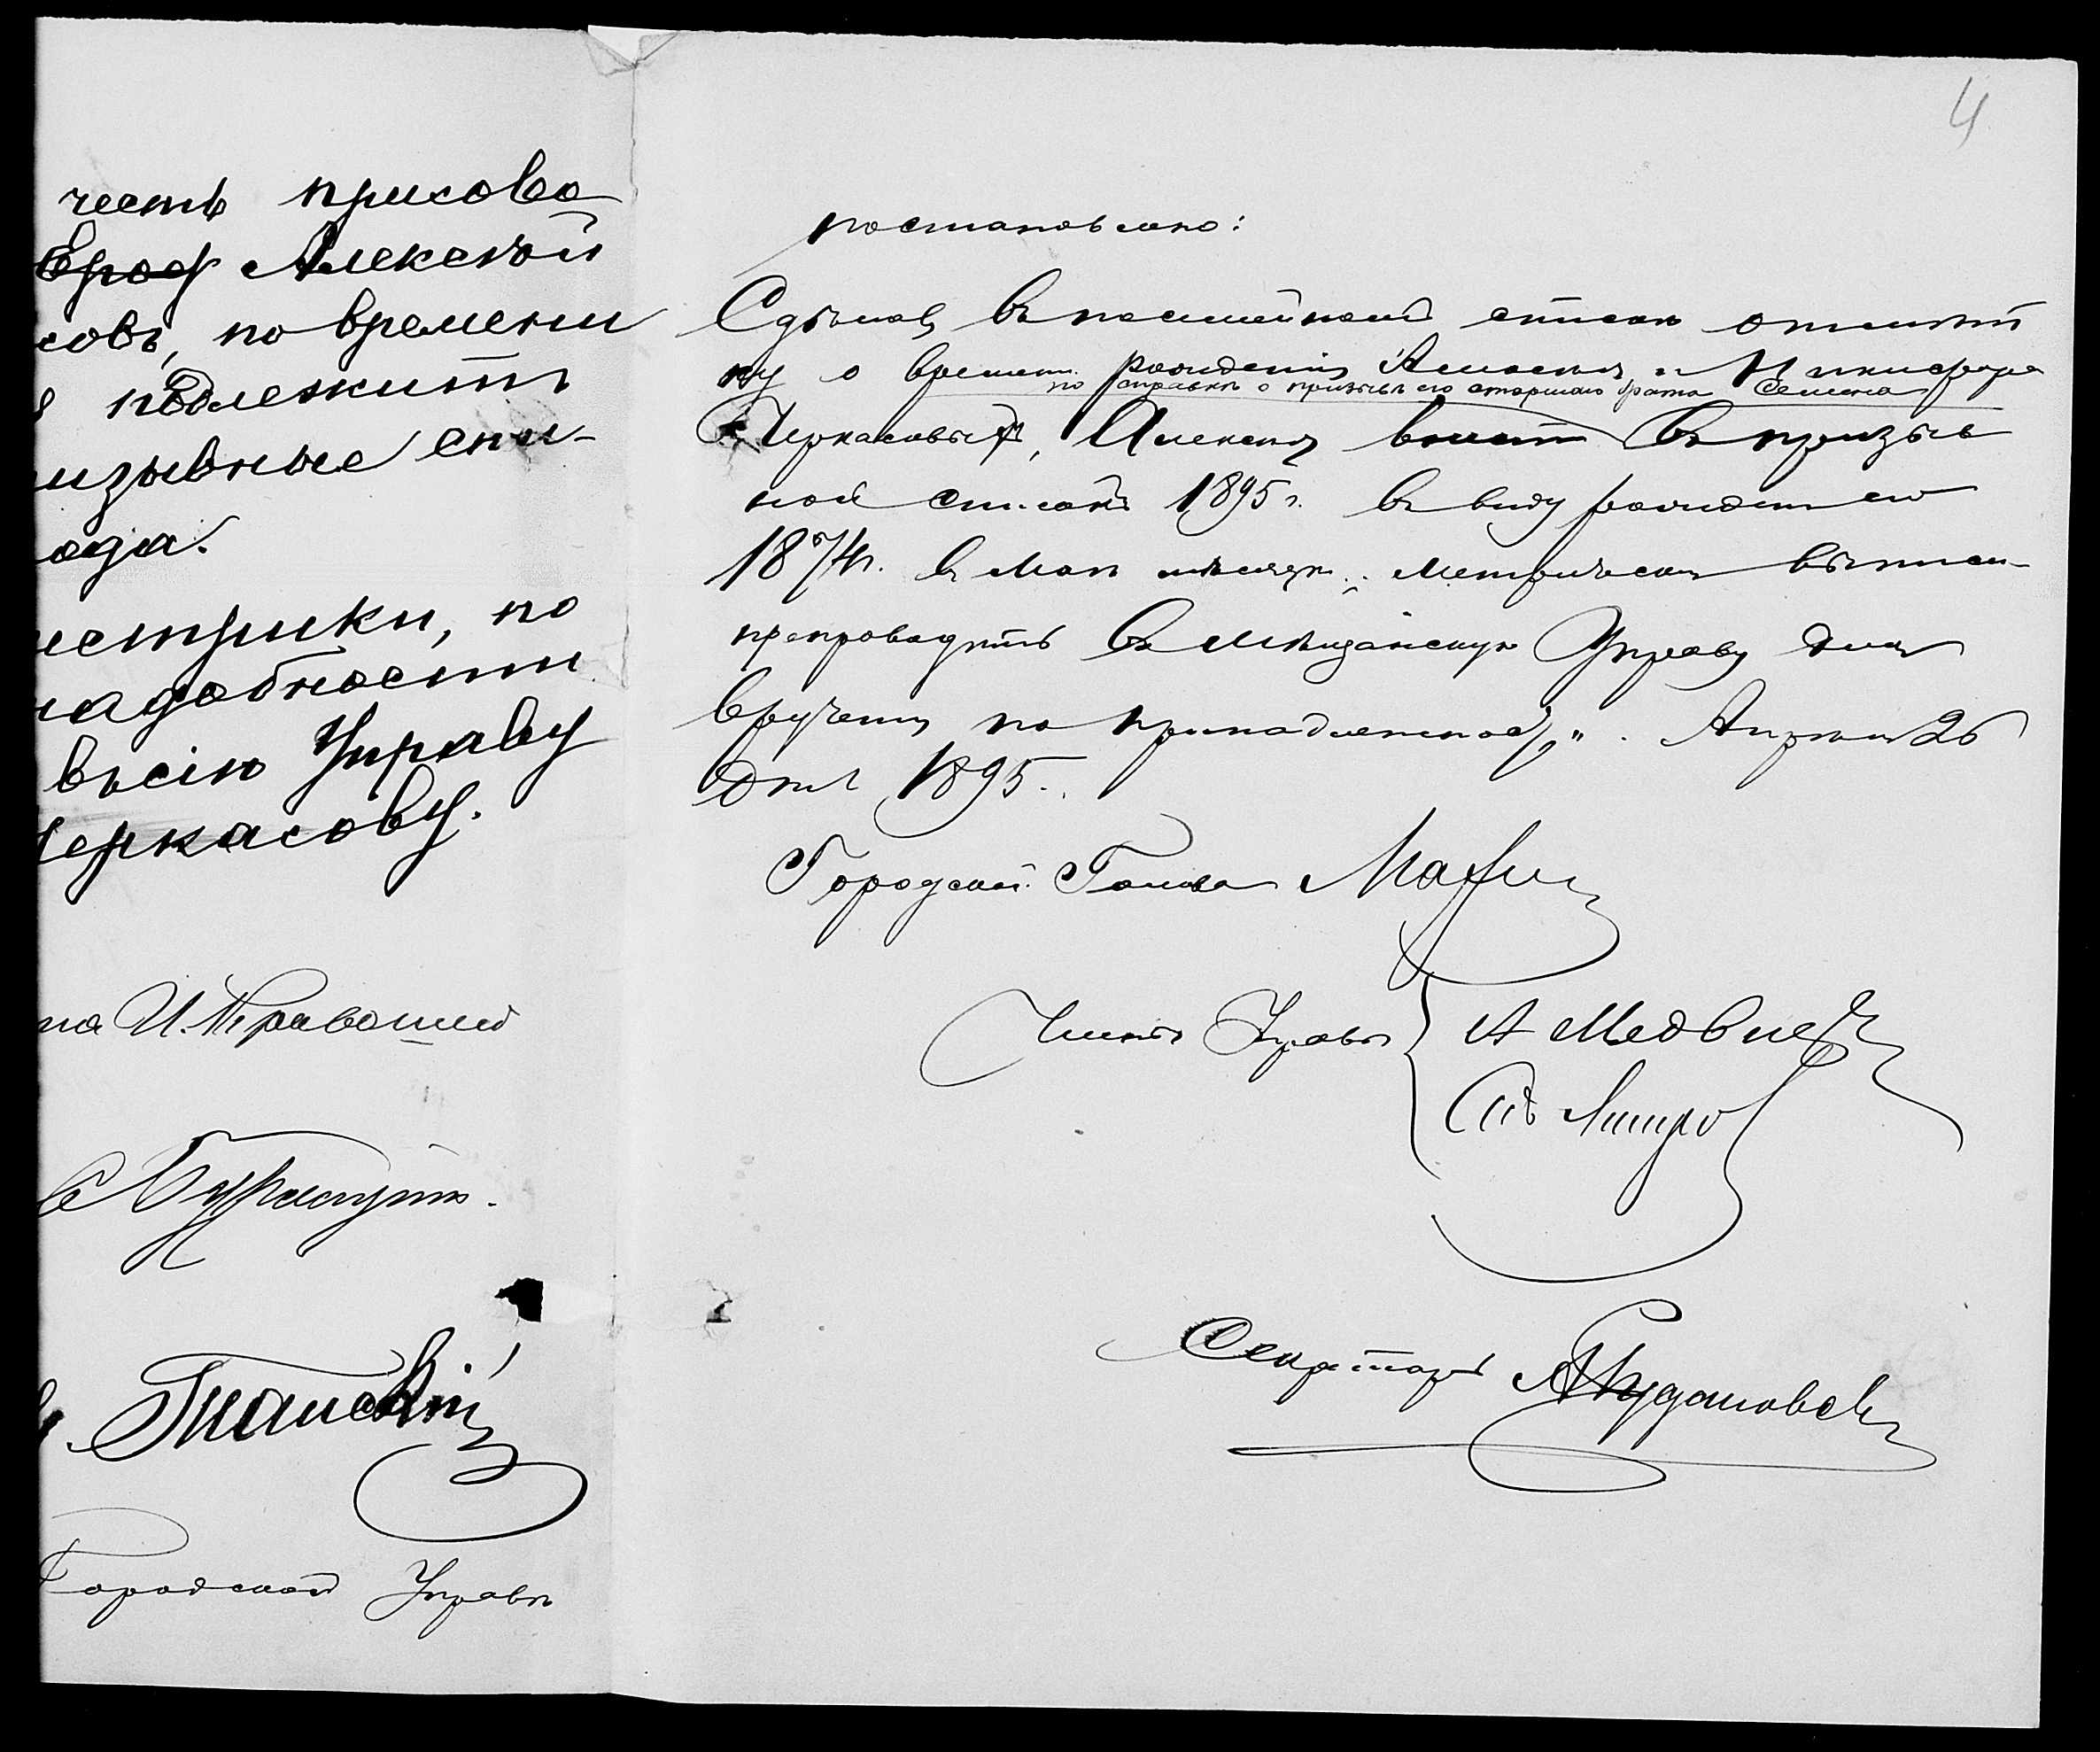 честь присово
Ероф Алексѣй
совъ, по времени
подлежитъ
изывные спи-
ода.
метрики, по
надобности
вскую Управу
Черкасову.
на И. Кравошей
Городской Управы
4
постановлено:
Сдѣлавъ въ посемейномъ спискѣ отмѣт
ку о времени рожденія Алексѣя и Никифора
по справкѣ о призывѣ его старшаго брата Семена
Черкасовыхъ, Алексѣя внести въ призыв
ной списокъ 1895 г. въ виду рожденія его
1874 г. въ Маѣ мѣсяцѣ. Метрическія выписи
препроводить въ Мѣщанскую Управу для
врученія по принадлежности". Апрѣля 26
дня 1895.
Городской Голова
Члены Управы
А Медвѣдевъ
Секретарь